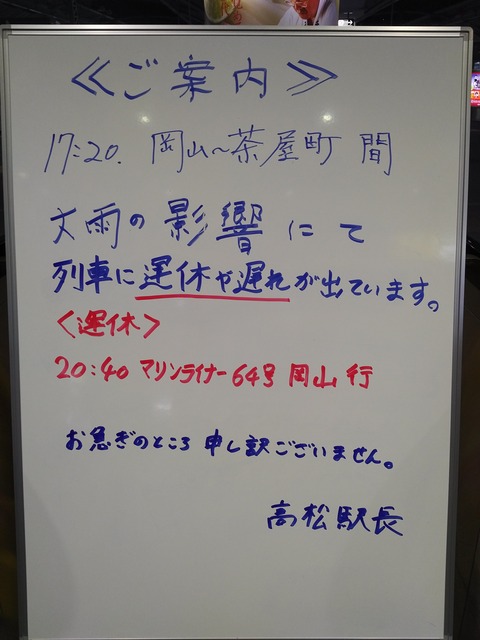 ≪ご案内≫
17:20. 岡山~茶屋町 間
大雨の影響にて
列車に運休や遅れが出ています。
<運休>
20:40 マリンライナー64号 岡山行
お急ぎのところ 申し訳ございません。
高松駅長